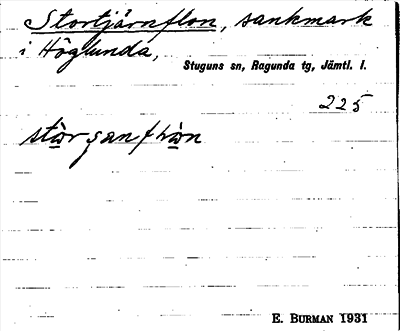 Stortjärnflon, sankmark
i Höglunda,
Stuguns sn, Ragunda tg, Jämtl. l.
225
E. BURMAN 1931